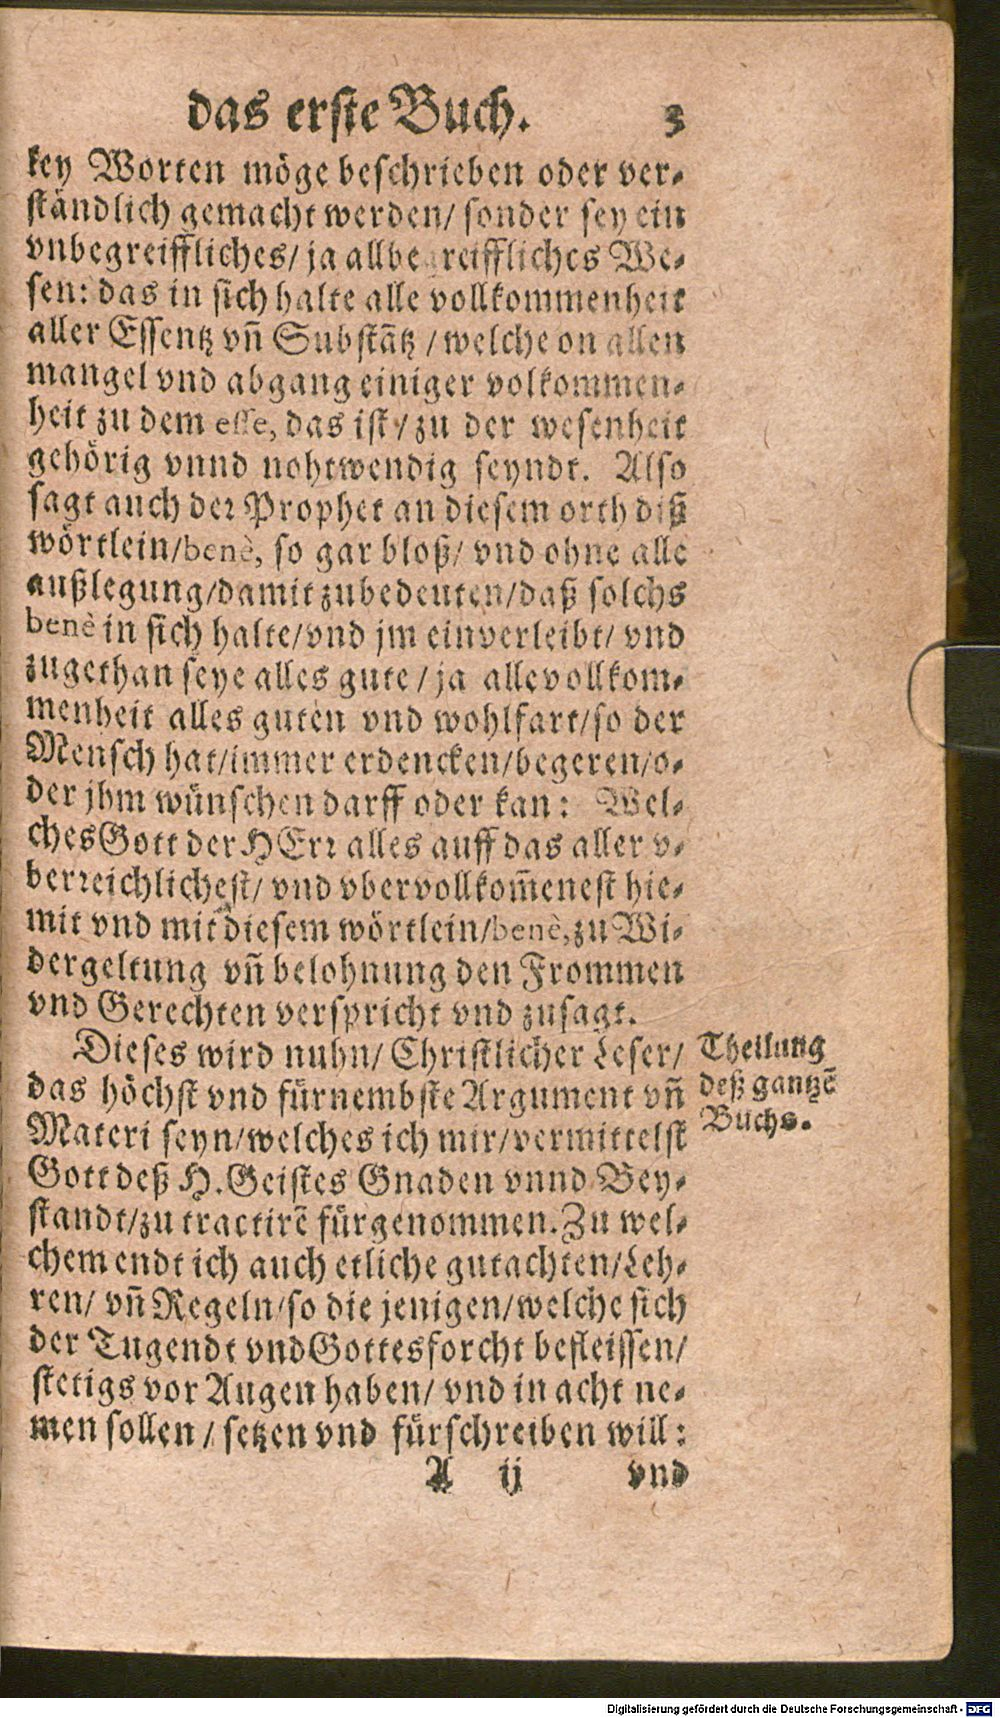 das erste Buch. 3
key Worten möge beschrieben oder ver-
ständlich gemacht werden/ sonder sey ein
vnbegreiffliches/ ja allbegreiffliches We-
sen: das in sich halte alle vollkommenheit
aller Essentz vñ Substātz / welche on allen
mangel vnd abgang einiger volkommen-
heit zu dem esse, das ist / zu der wesenheit
gehörig vnnd nohtwendig seyndt. Also
sagt auch der Prophet an diesem orth diß
wörtlein/benè, so gar bloß/ vnd ohne alle
außlegung/damit zubedeuten/daß solchs
benè in sich halte/vnd jm einverleibt/ vnd
zugethan seye alles gute / ja alle vollkom-
menheit alles guten vnd wohlfart/so der
Mensch hat/immer erdencken/begeren/o-
der jhm wünschen darff oder kan: Wel-
ches Gott der HErr alles auff das aller v-
berreichlichest/ vnd vbervollkom̃enest hie-
mit vnd mit diesem wörtlein/benè, zu Wi-
dergeltung vñ belohnung den Frommen
vnd Gerechten verspricht vnd zusagt.
Dieses wird nuhn/ Christlicher Leser/
das höchst vnd fürnembste Argument vñ
Materi seyn/welches ich mir/vermittelst
Gott deß H. Geistes Gnaden vnnd Bey-
standt/zu tractirẽ fürgenommen. Zu wel-
chem endt ich auch etliche gutachten/Leh-
ren/ vñ Regeln/so die jenigen/welche sich
der Tugendt vnd Gottesforcht befleissen/
stetigs vor Augen haben/ vnd in acht ne-
men sollen / setzen vnd fürschreiben will:
A ij vnd
Theilung
deß gantzẽ
Buchs.
Digitalisierung gefördert durch die Deutsche Forschungsgemeinschaft - DFG